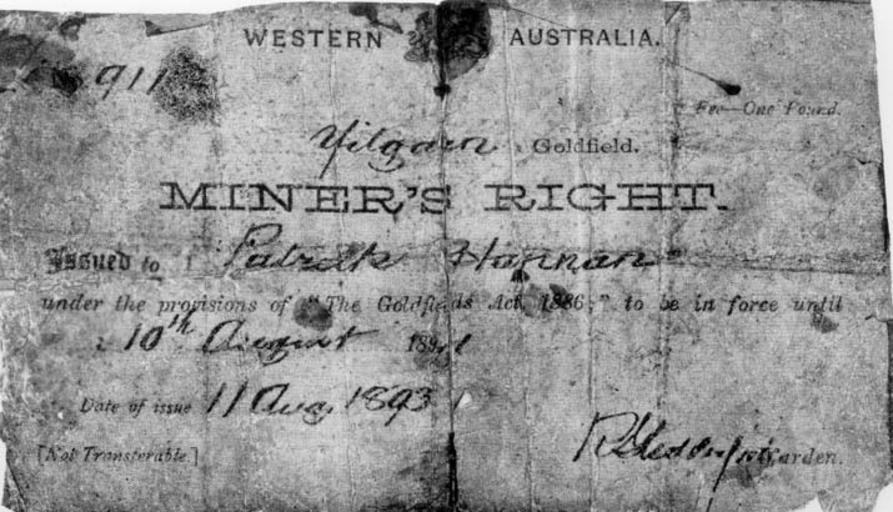 WESTERN AUSTRALIA.
911
Fee—One Pound.
Yilgarn Goldfield.
MINER'S RIGHT.
Issued to Patrick Hannan
under the provisions of "The Goldfields Act, 1886;" to be in force until
10th August 189
Date of issue 11 Aug 1893
[Not Transferable.]
Warden.